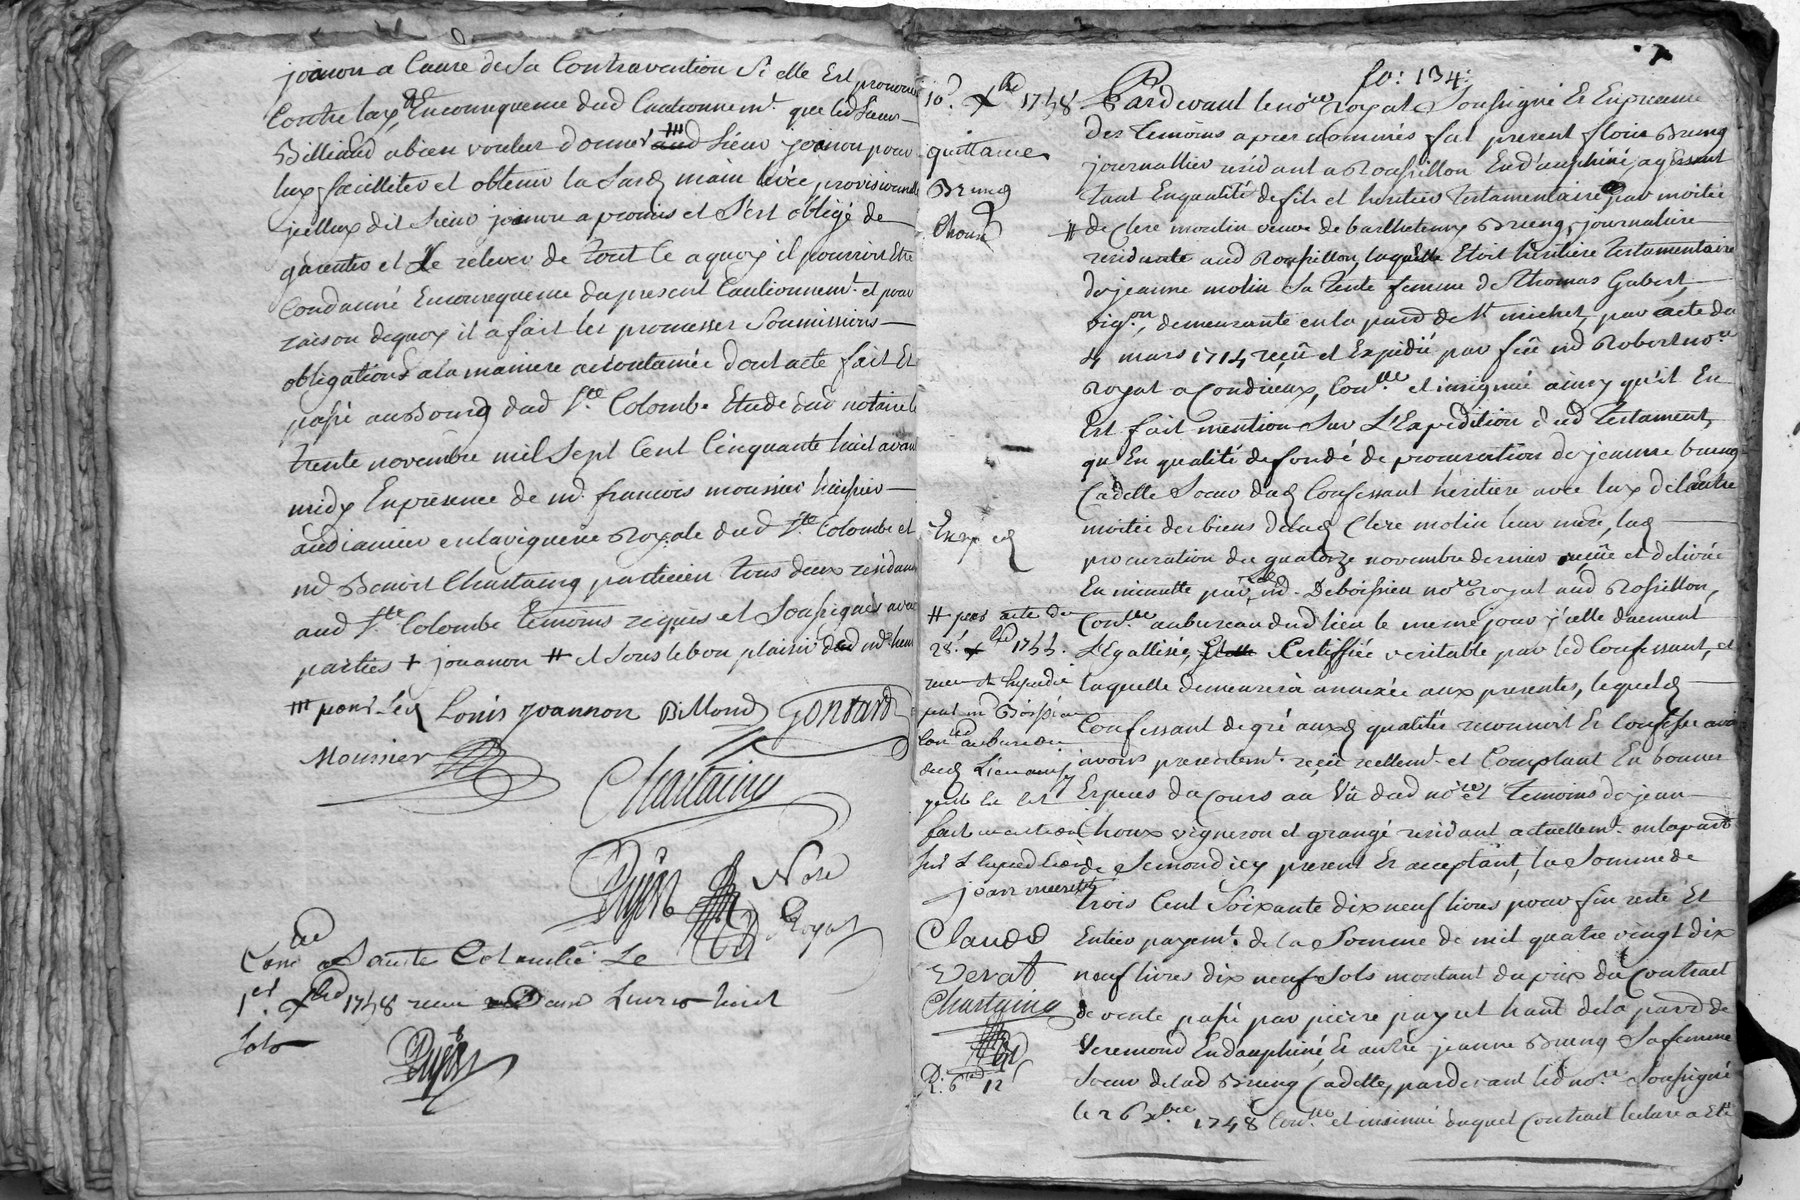 joanon a Cause de la Contravention Si elle Est prouvée
Contre luy, En consequence dud Cautionnem.t que led Sieur
Billiaud a bien voulu donner aud Sieur joanon pour
luy faciliter et obtenir la Susd main levée, provisionnelle
icelluy dit Sieur joanon a promis et s'est obligé de
garentir et Le relever de tout ce a quoy il pourroit Etre
Condanné En consequence du present Cautionnem.t et pour
raison dequoy il a fait les promesses Soumissions
obligations a la maniere accoutumée dont acte fait Et
passé au Bourg dud S.te Colombe Etude dud notaire le
trente novembre mil Sept Cent Cinquante huit avant
midy En presence de m.d françois moussier huissier
audiancier en la viguerie Royale dud S.te Colombe et
m.d Benoit Chastaing praticien tous deux résidants
aud S.te Colombe temoins requis et Soussignés avec
parties + joüanon # et Sous le bon plaisir dud m.d
# pour Led Louis Joannon Billiaud Gontard
Moussier
Chastaing
Dujast Not.re Royal
Con.lé a Sainte Colombe Le
1.er X.bre 1758 reçu Deux Livres huit
Sols
Dujast
fo: 134:
10.e X.bre 1758
quittance
Brung
Choux
Exp ed
Pardevant le no.re royal Soussigné Et En presence
des temoins apres nommés fut present floris Brung
journallier residant a Roussillon En dauphiné, agissant
tant En qualité de fils et heritier testamentaire par moitié
# de Clere moulin veuve de barthelemy Brung, journaliere
residante aud Roussillon, laquelle Etoit heritiere testamentaire
de jeanne molin Sa tante femme de Thomas Gabert
vig.on, demeurante en la parr.d de S.t michel, par acte du
4 mars 1714 reçû et Expedié par feu m.d Robert no.re
Royal a Condrieux, Con.llé et insinué ainsy qu'il En
Est fait mention Sur L'Expedition dud testament,
qu'En qualité de fondé de procuration de jeanne brung
Cadette Soeur dud Confessant heritiere avec luy de l'autre
moitié des biens de lad Clere molin leur mere, lad
procuration du quatorze novembre dernier reçüe et delivrée
En minutte par m.d Deboissieu no.re Royal aud Rossillon,
Con.llée au bureau dud lieu le meme jour icelle duement
Légallisée, Certiffiée veritable par led Confessant, et
laquelle demeurera annexée aux presentes, lequel d
Confessant de gré auxd qualités reconnoit Et Confesse avoir
avoir presentem.t reçû reellem.t et Comptant En bonnes
Especes du Cours au Vû dud no.re et temoins de jean
Choux vigneron et grangé residant actuellem.t en la parr.d
de Semond icy present Et acceptant, la Somme de
trois Cent Soixante dix neuf livres pour fin reste Et
Entier payem.t de la Somme de mil quatre vingt dix
neuf livres dix neuf Sols montant du prix du Contract
de vente passé par pierre payet habt de la parr.d de
Veremond En dauphiné, Et autre jeanne Brung Sa femme
Soeur de lad Brung Cadette, pardevant led no.re Soussigné
le 26 x.bre 1748 Con.llé et insinué duquel Contract lecture a Eté
# par acte du
28.e X.bre 1755.
reçu et Expedié
par m.d Boissieu
Con.llé au bureau
dud Lieu ainsy
qu'il en est
fait mention
Sur L'expedition
Claude
Verat
Chastaing
R. 12